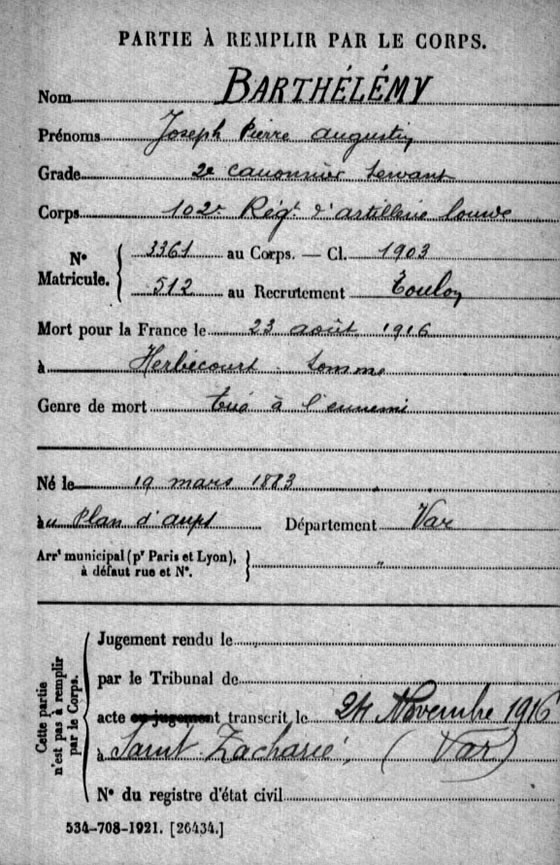 PARTIE À REMPLIR PAR LE CORPS.
Nom BARTHÉLÉMY
Prénoms Joseph Pierre Augustin
Grade 2e canonnier servant
Corps 102e Régt d'artillerie lourde
N° Matricule. 3361 au Corps. — Cl. 1903
512 au Recrutement Toulon
Mort pour la France le 23 août 1916
à Herbécourt - Somme
Genre de mort tué à l'ennemi
Né le 19 mars 1883
au Plan d'aups Département Var
Arrt municipal (pr Paris et Lyon), à défaut rue et N°. "
Cette partie n'est pas à remplir par le Corps.
Jugement rendu le
par le Tribunal de
acte ou jugement transcrit le 24 Novembre 1916
à Saint-Zacharie, (Var)
N° du registre d'état civil
534-708-1921. [26434.]